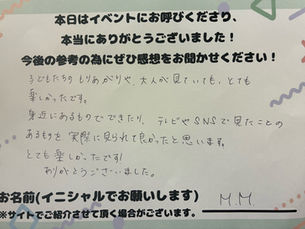 本日はイベントにお呼びくださり、
本当にありがとうございました！
今後の参考の為にぜひ感想をお聞かせください！
子どもたちのもりあがりや、大人が見ていても、とても
楽しかったです。
身近にあるものでできたり、テレビやSNSで見たことの
あるものを実際に見られて良かったと思います。
とても楽しかったです!
ありがとうございました。
お名前(イニシャルでお願いします) M.M.
※サイトでご紹介させて頂く場合がございます。